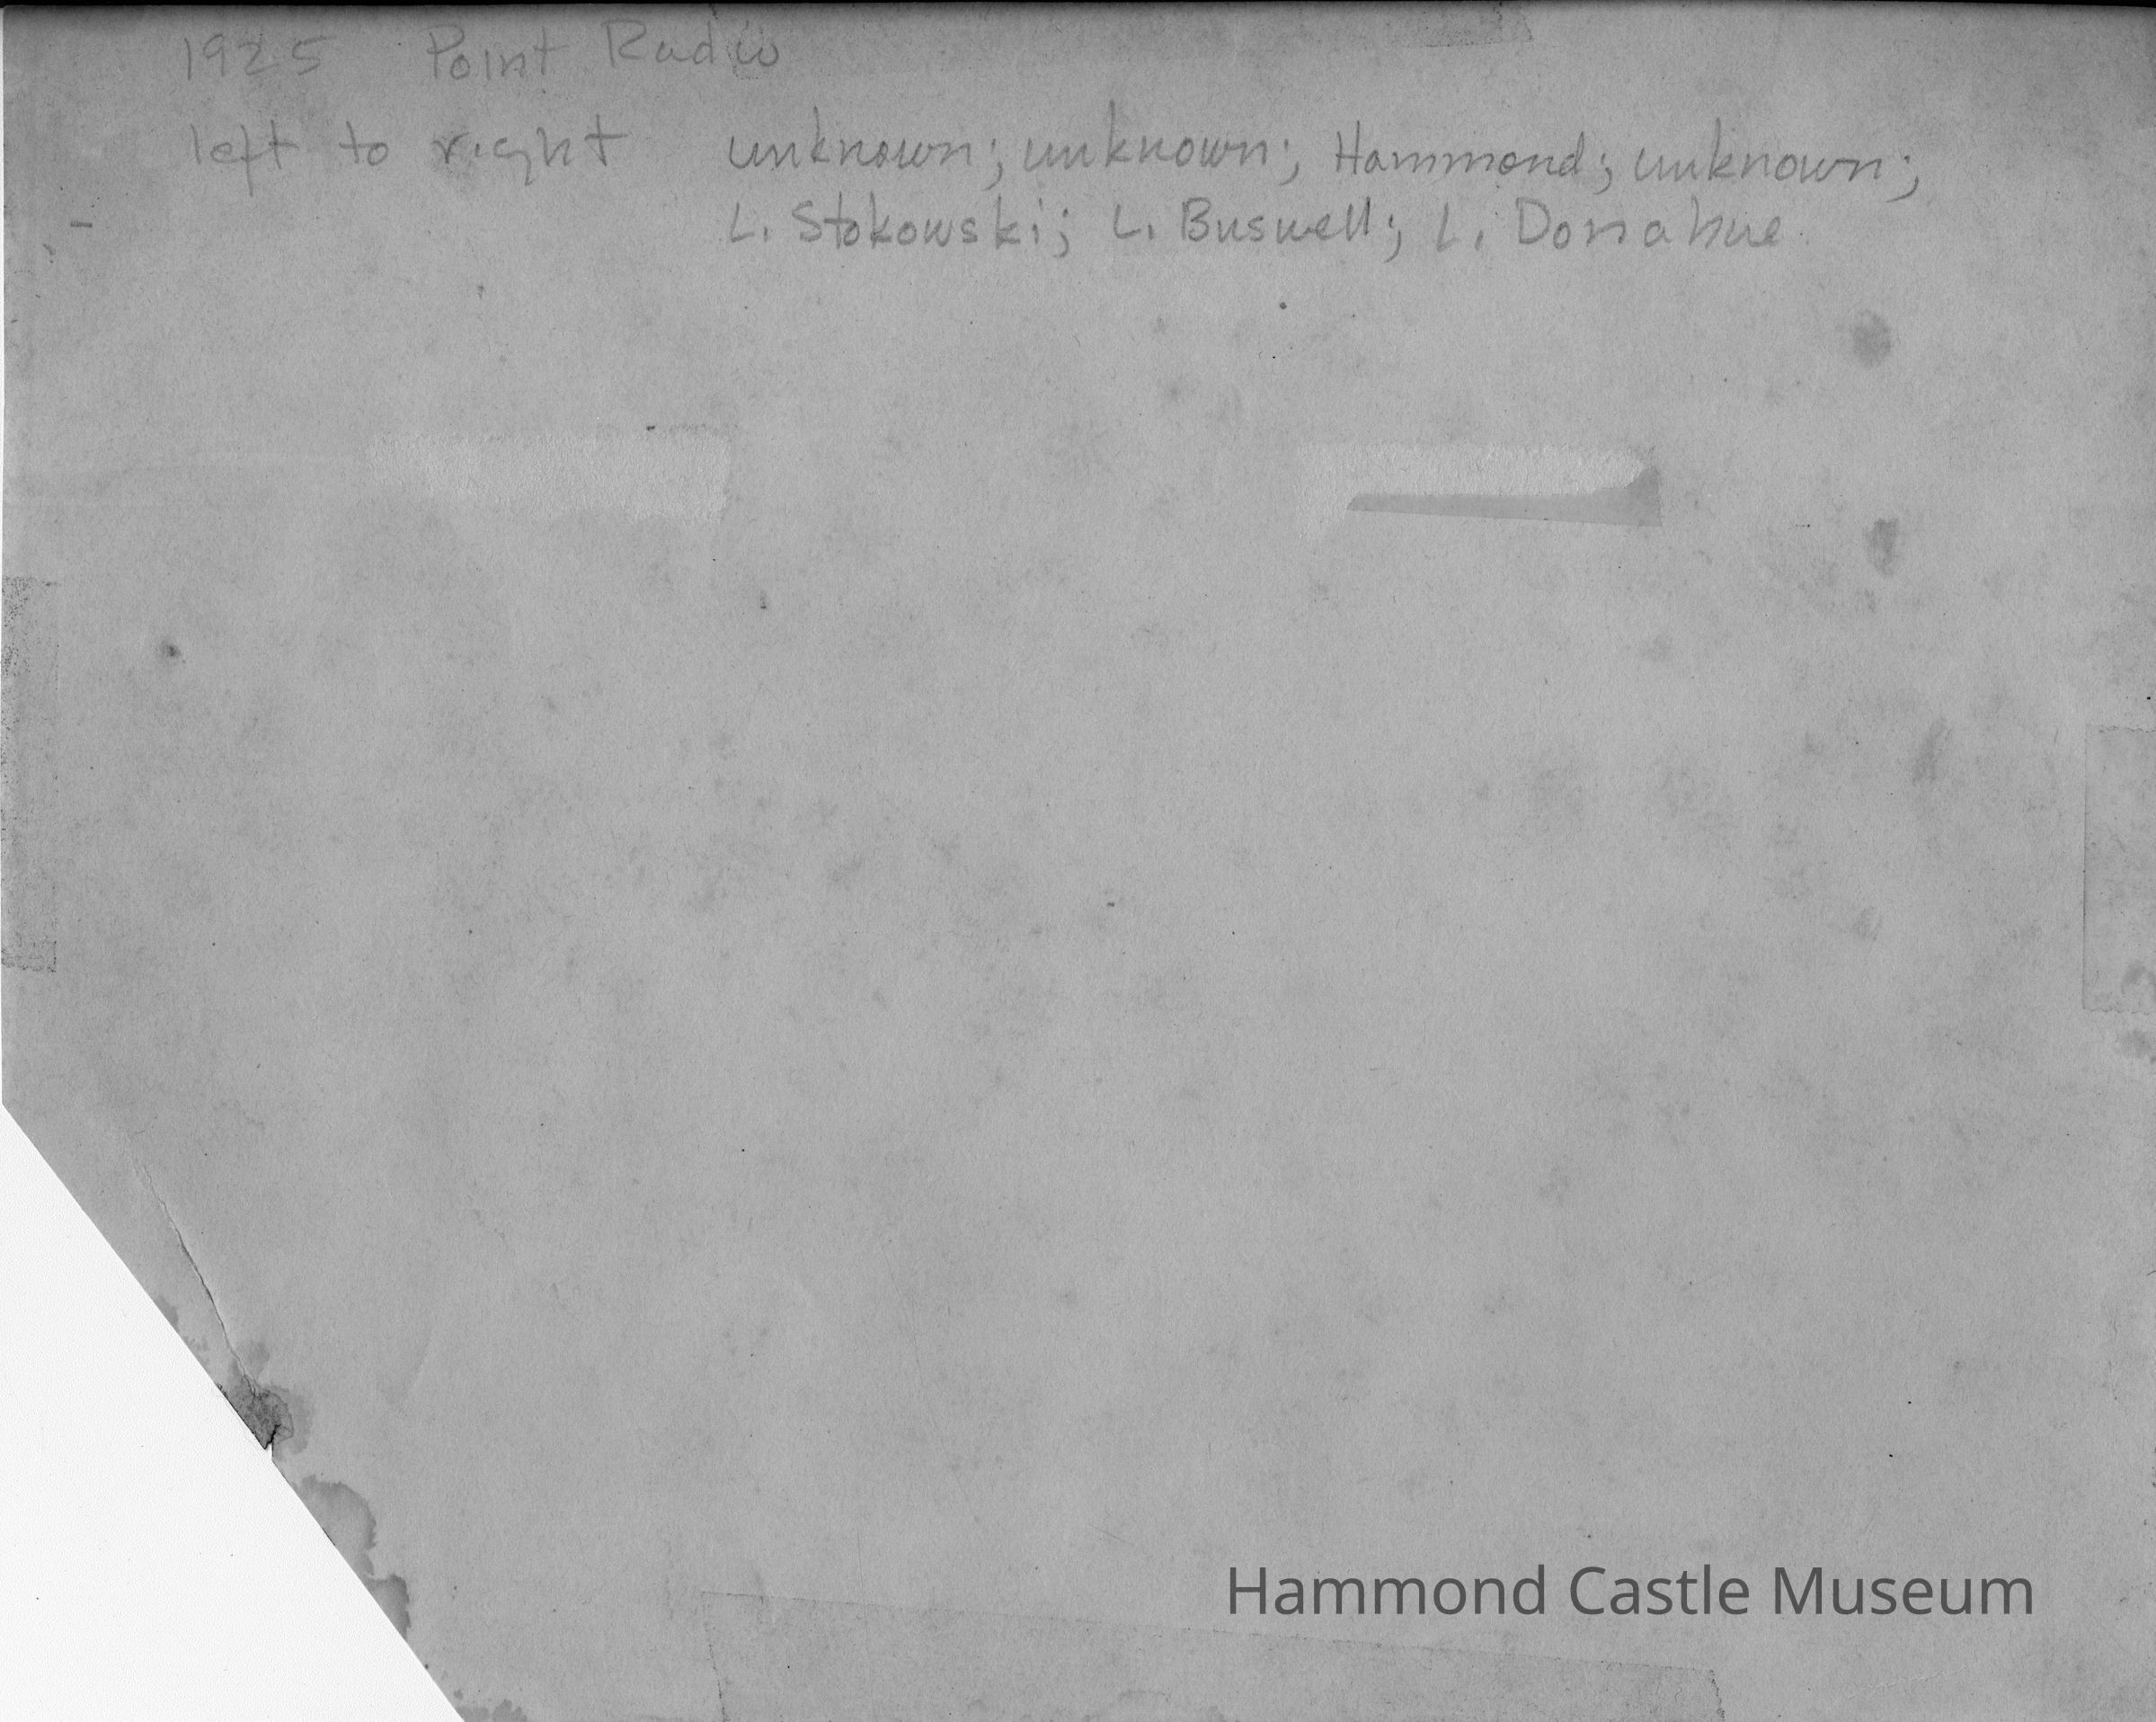 1925 Point Radio
left to right unknown; unknown; Hammond; unknown;
L. Stokowski; L. Buswell; L. Donahue.
Hammond Castle Museum